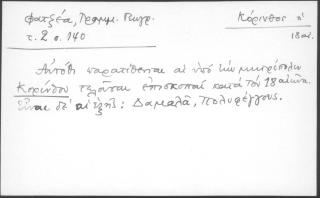 Φατζέα, Γραμμ. Γεωγρ.
τ. 2 σ. 140
Κόρινθος ἡ
18 αἰ.
Αὐτόθι παρατίθενται αἱ ὑπό τήν μητρόπολιν
Κορίνθου τελοῦσαι ἐπισκοπαί κατά τόν 18 αἰῶνα.
Εἶναι δέ αἱ ἑξῆς: Δαμαλᾶ, Πολυφέγγους.